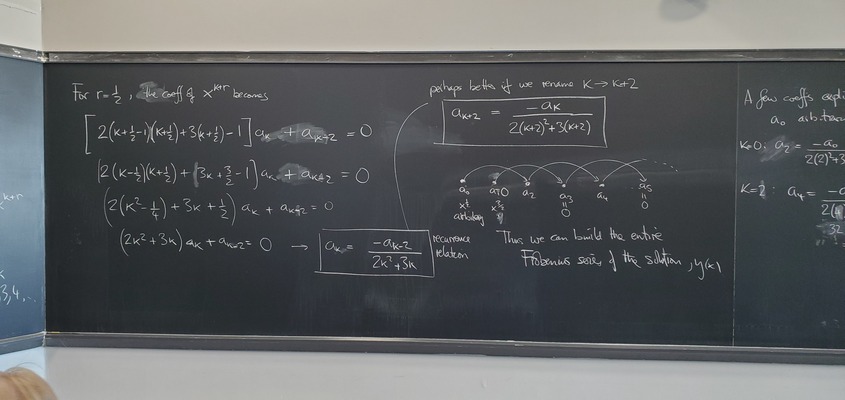 For r=½, the coeff of x^{k+r} becomes
[2(k+½-1)(k+½)+3(k+½)-1] a_k + a_{k+2} = 0
[2(k-½)(k+½) + (3k+3/2-1)] a_k + a_{k+2} = 0
(2(k²-¼) + 3k + ½) a_k + a_{k+2} = 0
(2k²+3k) a_k + a_{k-2} = 0 → a_k = -a_{k-2} / (2k²+3k)
recurrence
relation
perhaps better if we rename k → k+2
a_{k+2} = -a_k / (2(k+2)²+3(k+2))
a_0 a_2 a_3 a_4 a_5
x^{½} = 0 = 0
arbitrary
Thus we can build the entire
Frobenius series of the solution, y(x)
A few coeffs
a_0
k=0: a_2 = -a_0
k=2: a_4 =
32
x^{k+r}
3,4,...